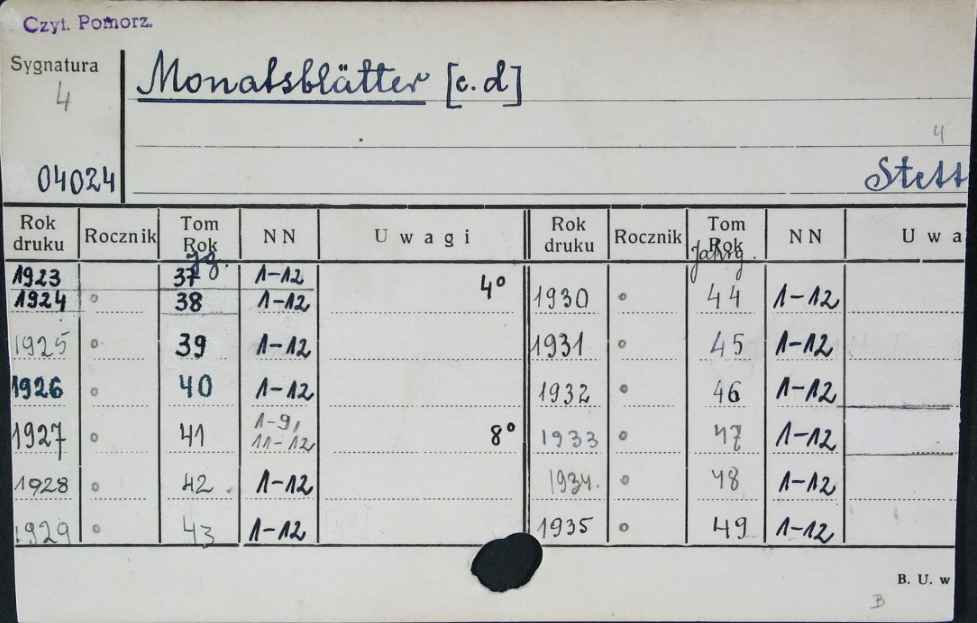 Czyt. Pomorz.
Sygnatura
4
04024
Monatsblätter [c.d]
4
Stett
Rok druku Rocznik Tom Rok Jg. NN Uwagi Rok druku Rocznik Tom Rok Jahrg. NN Uwa
1923 37 1-12 4° 
1924 38 1-12 1930 44 1-12
1925 39 1-12 1931 45 1-12
1926 40 1-12 1932 46 1-12
1927 41 1-9, 11-12 8° 1933 47 1-12
1928 42. 1-12 1934. 48 1-12
1929 43 1-12 1935 49 1-12
B. U. w
B